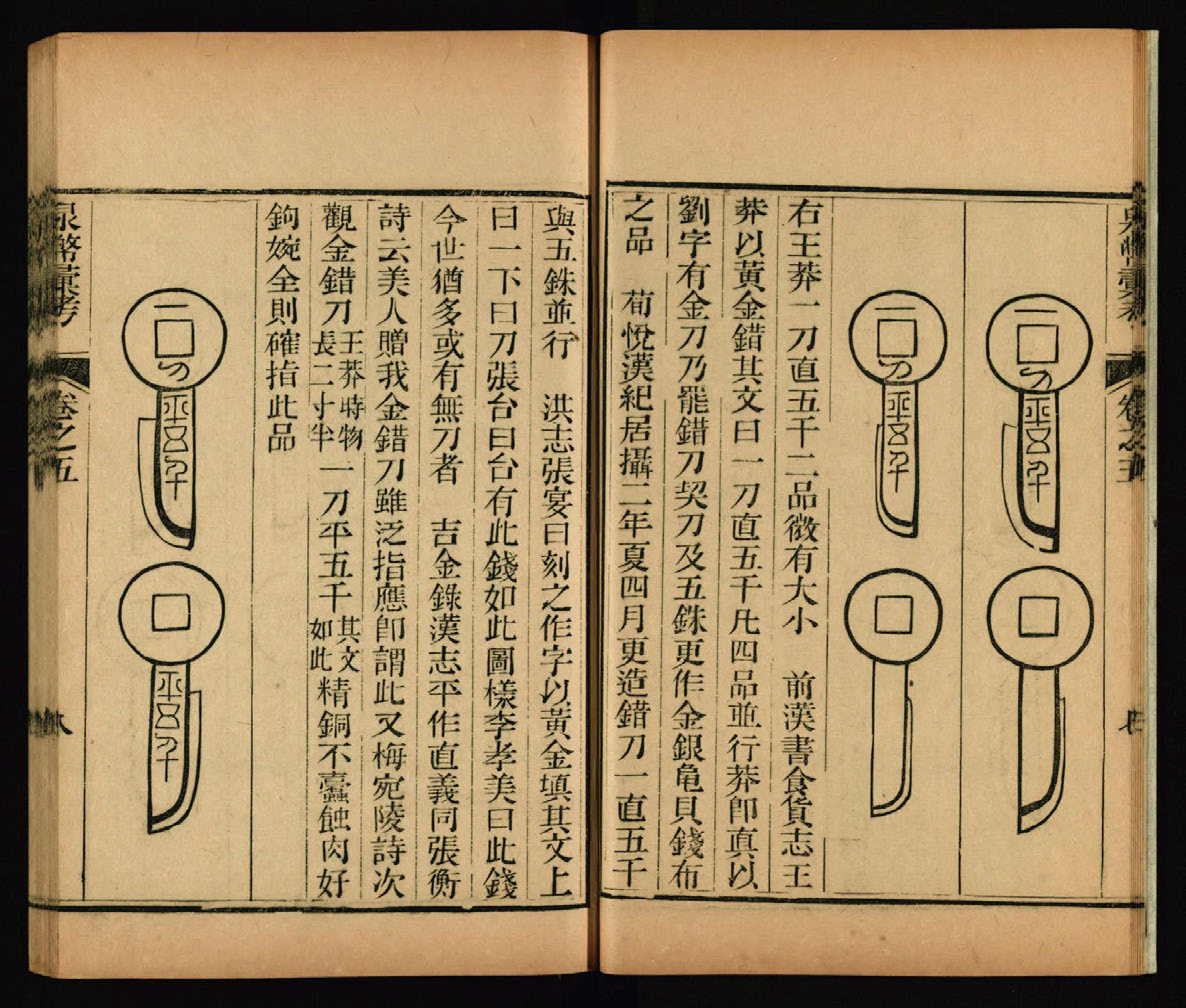 泉幣彙考 卷之五
一刀
平五千
一刀
平五千
右王莽一刀直五千二品微有大小 前漢書食貨志王
莽以黃金錯其文曰一刀直五千凡四品並行莽即真以
劉字有金刀乃罷錯刀契刀及五銖更作金銀亀貝錢布
之品 荀悅漢紀居攝二年夏四月更造錯刀一直五千
與五銖並行 洪志張宴曰刻之作字以黃金填其文上
曰一下曰刀張台曰台有此錢如此圖樣李孝美曰此錢
今世猶多或有無刀者 吉金錄漢志平作直義同張衡
詩云美人贈我金錯刀雖泛指應即謂此又梅宛陵詩次
觀金錯刀王莽時物長二寸半一刀平五千其文如此精銅不蠹蝕肉好
鉤婉全則確指此品
一刀
平五千
平五千
泉幣彙考 卷之五 八